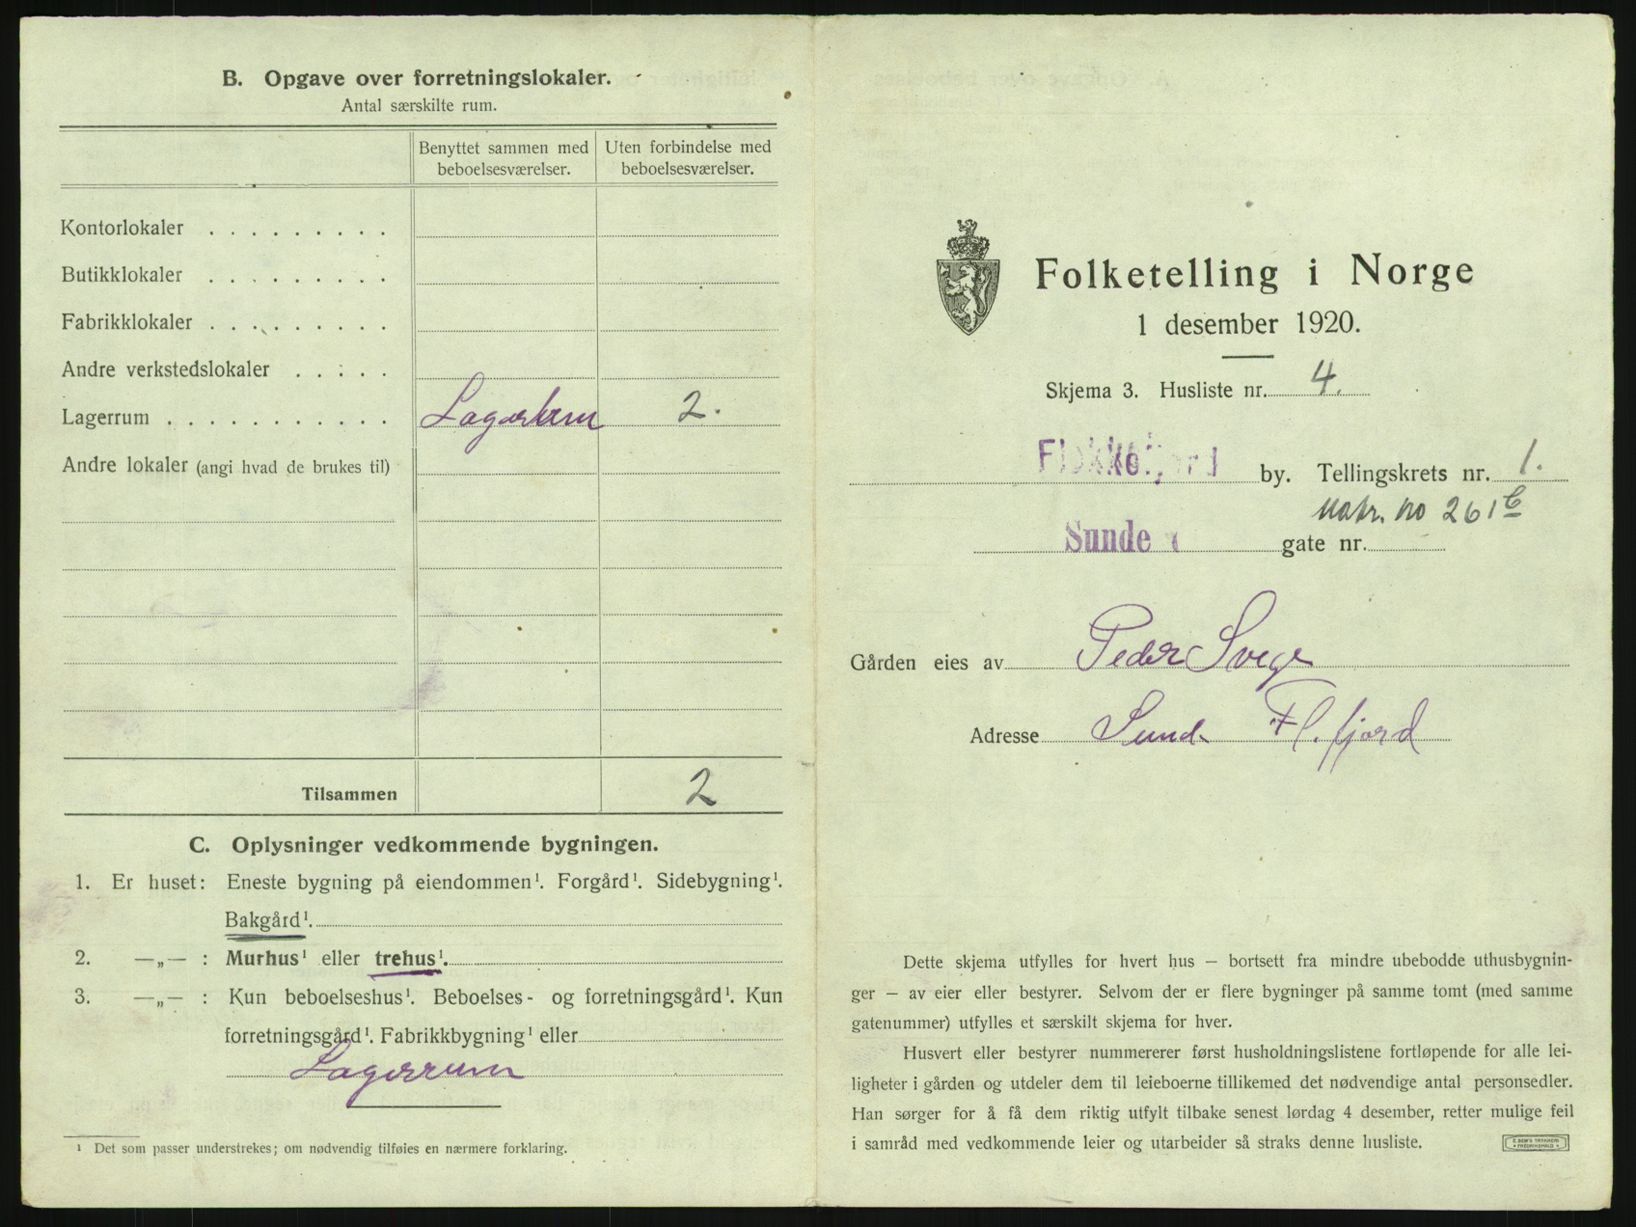 B. Opgave over forretningslokaler.
Antal særskilte rum.
Benyttet sammen med beboelsesværelser.
Uten forbindelse med beboelsesværelser.
Kontorlokaler . . . . . . . . .
Butikklokaler . . . . . . . . .
Fabrikklokaler . . . . . . . . .
Andre verkstedslokaler . . . . .
Lagerrum . . . . . . . . . . . 2.
Andre lokaler (angi hvad de brukes til)
Tilsammen 2
C. Oplysninger vedkommende bygningen.
1. Er huset: Eneste bygning på eiendommen¹. Forgård¹. Sidebygning¹.
Bakgård¹.
2. —„— : Murhus¹ eller trehus¹.
3. —„— : Kun beboelseshus¹. Beboelses- og forretningsgård¹. Kun
forretningsgård¹. Fabrikkbygning¹ eller
Lagerrum
¹ Det som passer understrekes; om nødvendig tilføies en nærmere forklaring.
Folketelling i Norge
1 desember 1920.
Skjema 3. Husliste nr. 4.
Flekkefjord by. Tellingskrets nr. 1.
Matr. no 261
Sunde gate nr.
Gården eies av Peder Svege
Adresse Sunde Fl.fjord
Dette skjema utfylles for hvert hus — bortsett fra mindre ubebodde uthusbygnin-
ger — av eier eller bestyrer. Selvom der er flere bygninger på samme tomt (med samme
gatenummer) utfylles et særskilt skjema for hver.
Husvert eller bestyrer nummererer først husholdningslistene fortløpende for alle lei-
ligheter i gården og utdeler dem til leieboerne tillikemed det nødvendige antal personsedler.
Han sørger for å få dem riktig utfylt tilbake senest lørdag 4 desember, retter mulige feil
i samråd med vedkommende leier og utarbeider så straks denne husliste.